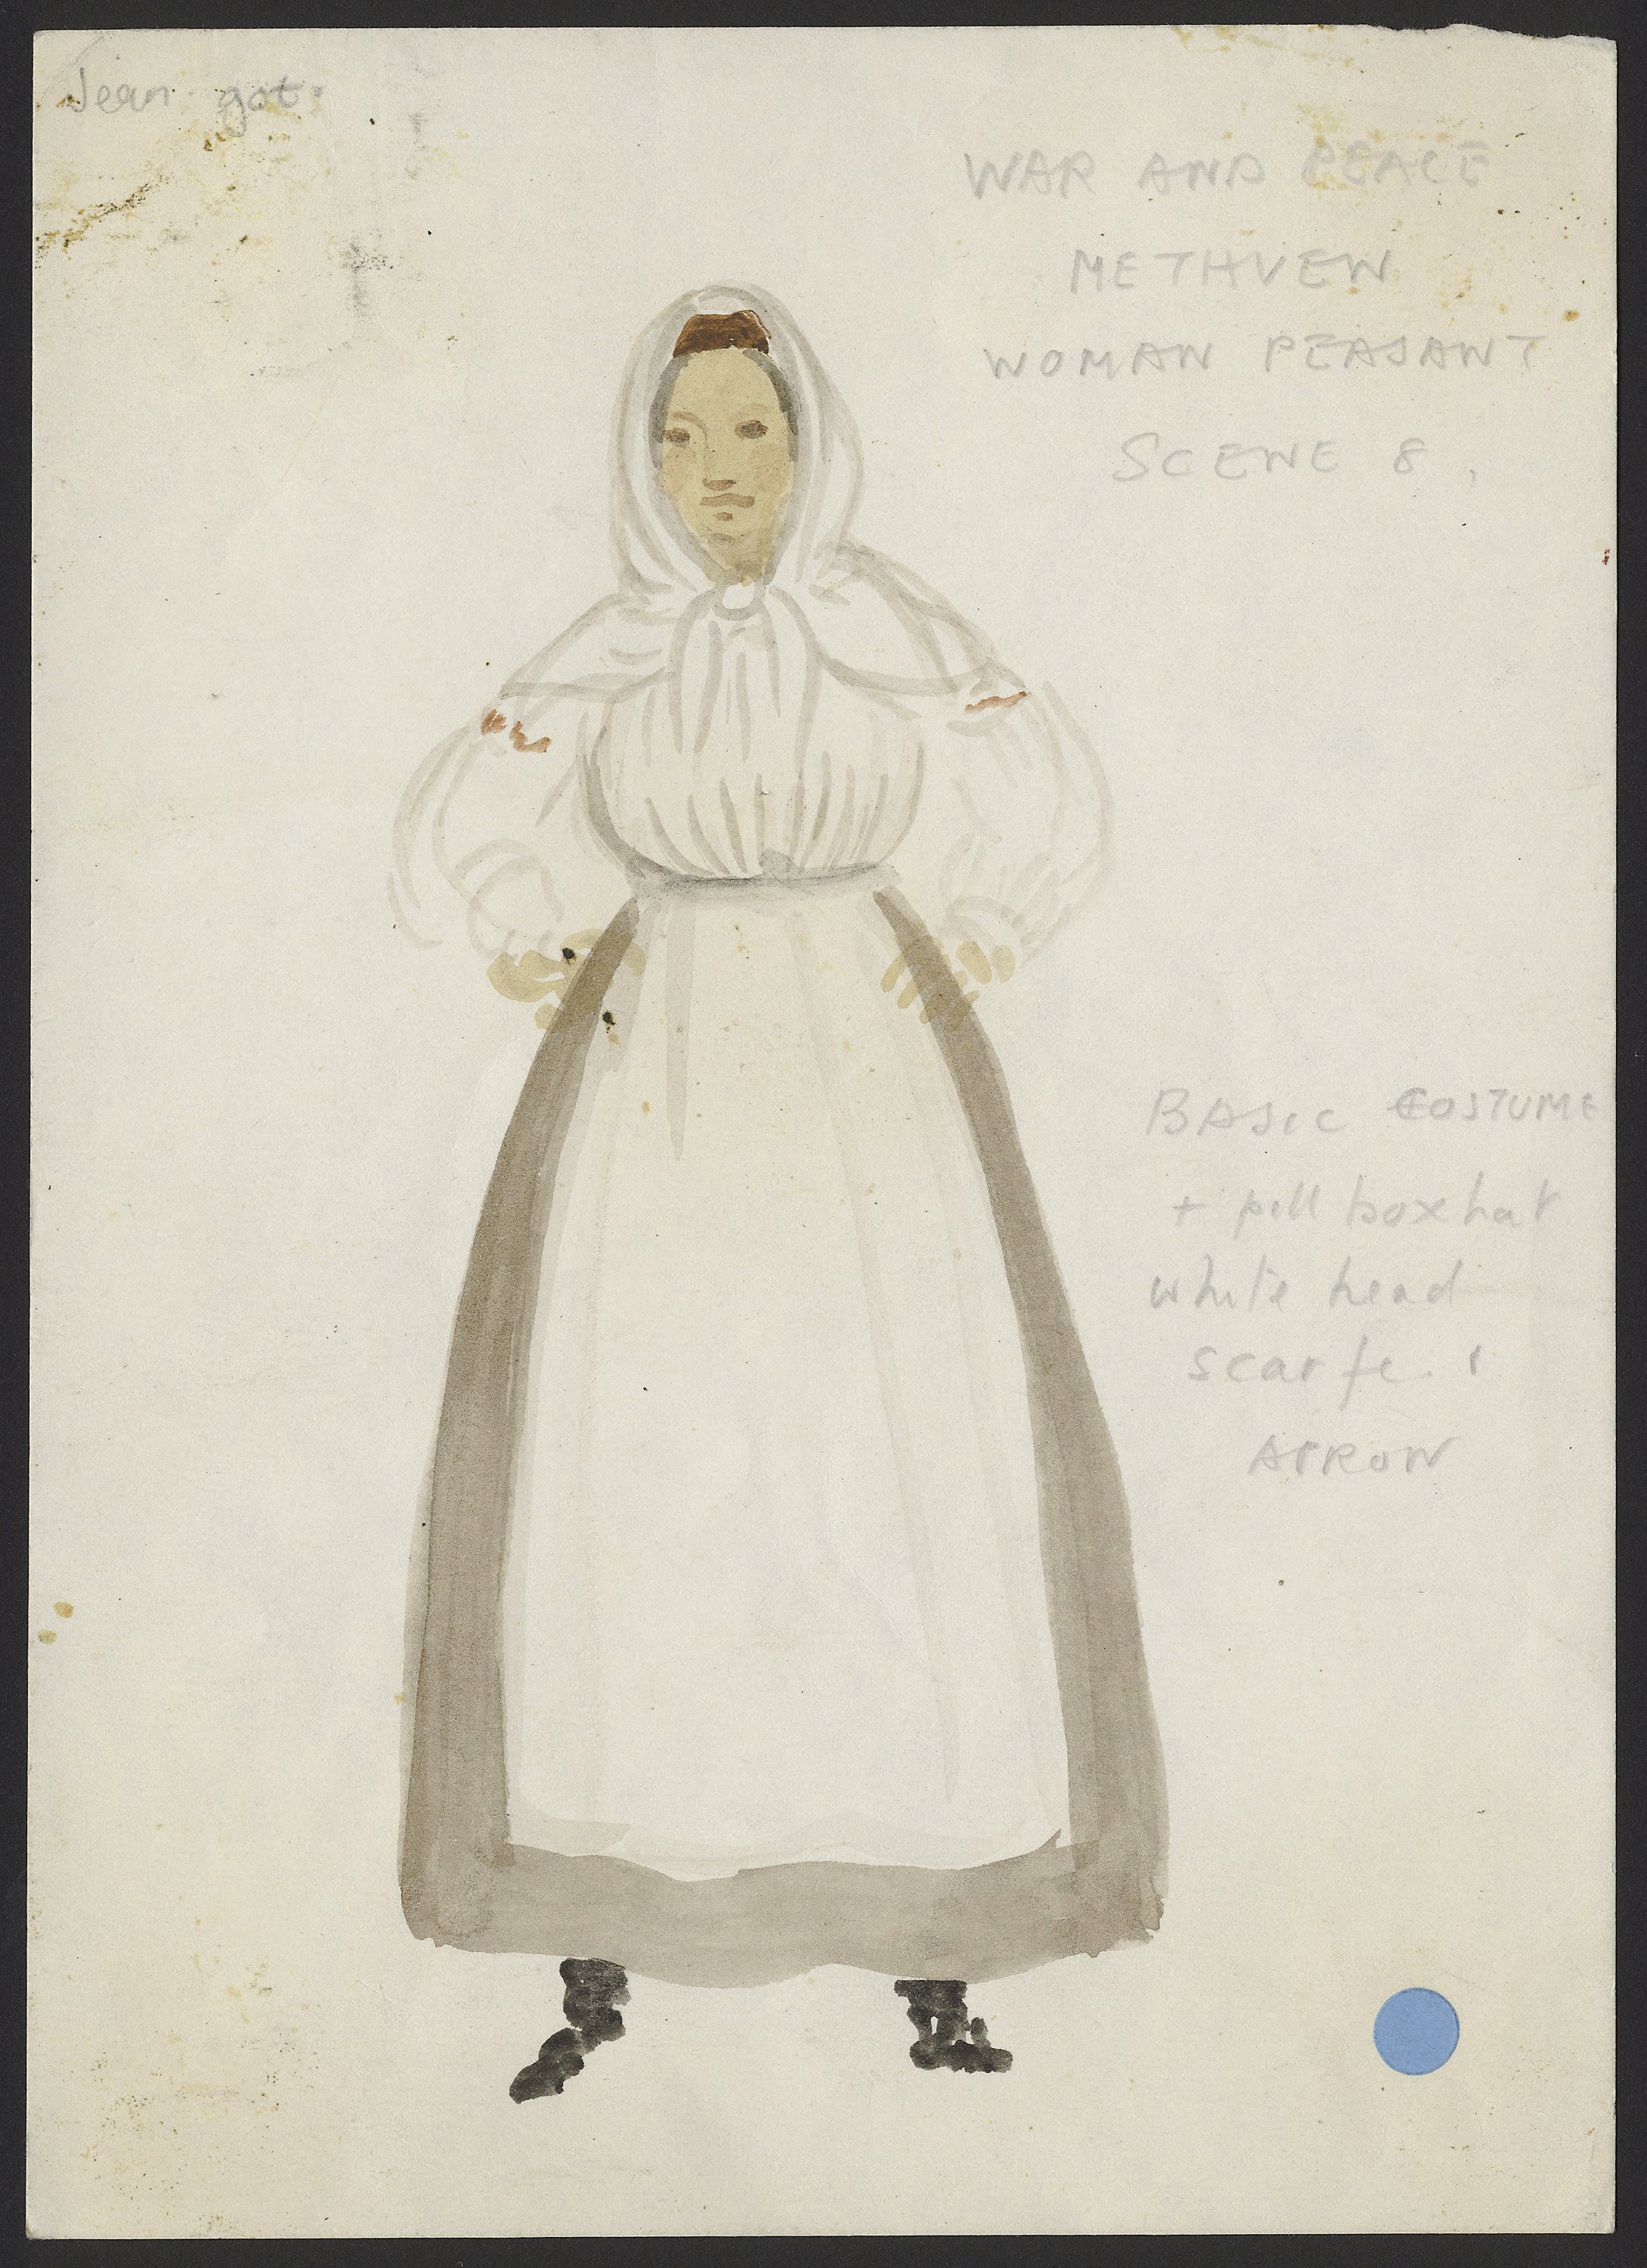 Jean got.
WAR AND PEACE
METHVEN
WOMAN PEASANT
SCENE 8.
BASIC COSTUME
+ pill box hat
white head
scarfe.
APRON